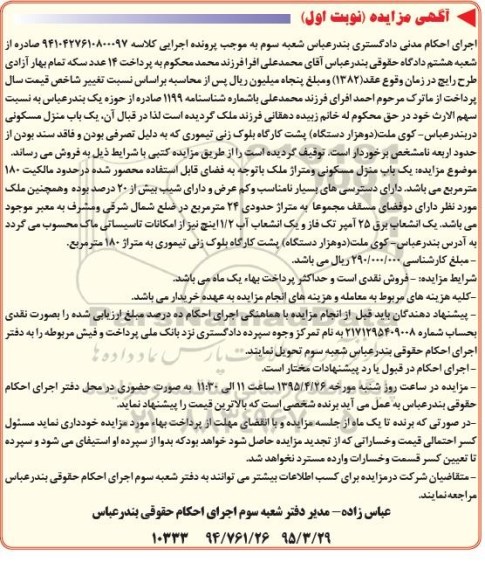 آگهی مزایده (نوبت اول)
اجرای احکام مدنی دادگستری بندرعباس شعبه سوم به موجب پرونده اجرایی کلاسه ۹۴۱۰۴۲۷۶۱۰۸۰۰۰۹۷ صادره از
شعبه هشتم دادگاه حقوقی بندرعباس آقای محمدعلی افرا فرزند محمد محکوم به پرداخت ۱۴ عدد سکه تمام بهار آزادی
طرح رایج در زمان وقوع عقد (۱۳۸۲) ومبلغ پنجاه میلیون ریال پس از محاسبه براساس نسبت تغییر شاخص قیمت سال
پرداخت از ماترک مرحوم احمد افرای فرزند محمدعلی باشماره شناسنامه ۱۱۹۹ صادره از حوزه یک بندرعباس به نسبت
سهم الارث خود در حق محکوم له خانم زبیده دهقانی فرزند ملک گردیده است لذا در قبال آن، یک باب منزل مسکونی
دربندرعباس- کوی ملت(دوهزار دستگاه) پشت کارگاه بلوک زنی تیموری که به دلیل تصرفی بودن و فاقد سند بودن از
حدود اربعه نامشخص برخوردار است. توقیف گردیده است را از طریق مزایده کتبی با شرایط ذیل به فروش می رساند.
موضوع مزایده: یک باب منزل مسکونی ومتراژ ملک باتوجه به فضای قابل استفاده محصور شده درحدود مالکیت ۱۸۰
مترمربع می باشد. دارای دسترسی های بسیار نامناسب وکم عرض و دارای شیب بیش از ۲۰ درصد بوده وهمچنین ملک
مورد نظر دارای دوفضای مسقف مجموعا به متراژ حدودی ۲۴ مترمربع در ضلع شمال شرقی ومشرف به معبر موجود
می باشد. یک انشعاب برق ۲۵ آمپر تک فاز و یک انشعاب آب ۱/۲ اینچ نیز از امکانات تاسیساتی ماک محسوب می گردد
به آدرس بندرعباس- کوی ملت(دوهزار دستگاه) پشت کارگاه بلوک زنی تیموری به متراژ ۱۸۰ مترمربع.
- مبلغ کارشناسی ۲۹۰/۰۰۰/۰۰۰ ریال می باشد.
شرایط مزایده: - فروش نقدی است و حداکثر پرداخت بهاء یک ماه می باشد.
-کلیه هزینه های مربوط به معامله و هزینه های انجام مزایده به عهده خریدار می باشد.
- پیشنهاد دهندگان باید قبل از انجام مزایده با هماهنگی اجرای احکام ده درصد مبلغ ارزیابی شده را بصورت نقدی
بحساب شماره ۲۱۷۱۲۹۵۴۰۹۰۰۸ به نام تمرکز وجوه سپرده دادگستری نزد بانک ملی پرداخت و فیش مربوطه را به دفتر
اجرای احکام حقوقی بندرعباس شعبه سوم تحویل نمایند.
- اجرای احکام در قبول یا رد پیشنهادات مختار است.
- مزایده در ساعت روز شنبه مورخه ۱۳۹۵/۴/۲۶ ساعت ۱۱ الی ۱۱:۳۰ به صورت حضوری در محل دفتر اجرای احکام
حقوقی بندرعباس به عمل می آید برنده شخصی است که بالاترین قیمت را پیشنهاد نماید.
-در صورتی که برنده تا یک ماه از جلسه مزایده و با انقضای مهلت از پرداخت بهاء مورد مزایده خودداری نماید مسئول
کسر احتمالی قیمت وخساراتی که از تجدید مزایده حاصل شود خواهد بود که بدوا از سپرده او استیفای می شود و سپرده
تا تعیین کسر قسمت وخسارات وارده مسترد نخواهد شد.
-متقاضیان شرکت درمزایده برای کسب اطلاعات بیشتر می توانند به دفتر شعبه سوم اجرای احکام حقوقی بندرعباس
مراجعه نمایند.
عباس زاده- مدیر دفتر شعبه سوم اجرای احکام حقوقی بندرعباس
۹۵/۳/۲۹ ۹۴/۷۶۱/۲۶ ۱۰۳۳۳